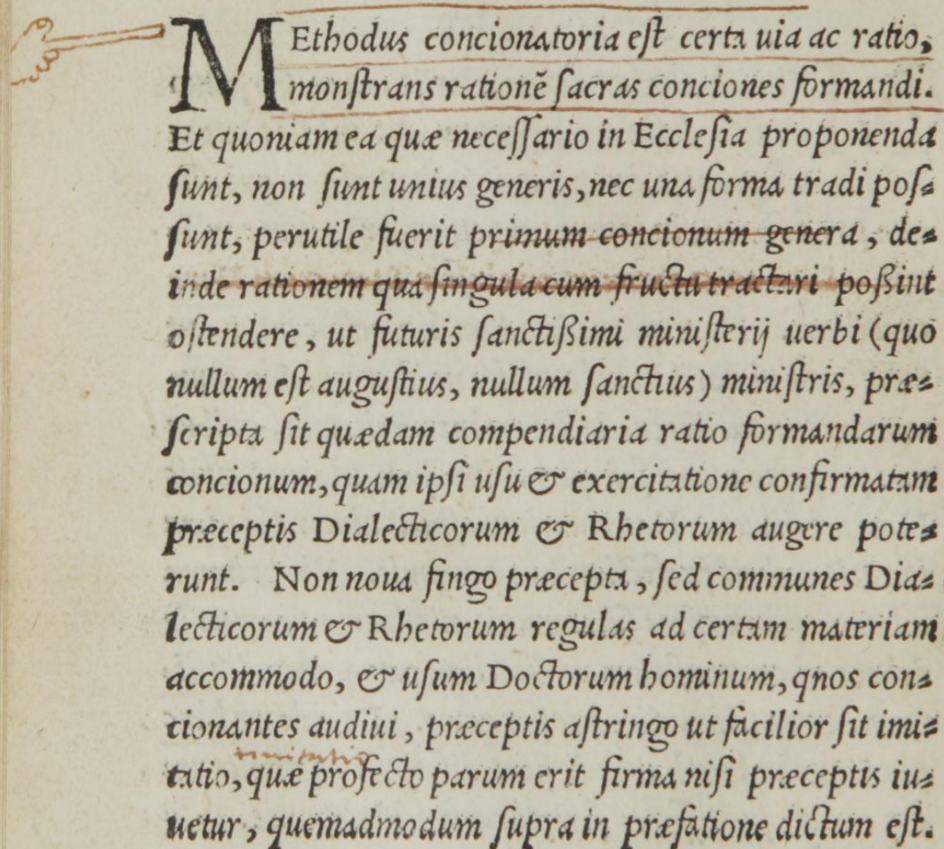 MEthodus concionatoria est certa uia ac ratio,
monstrans rationẽ sacras conciones formandi.
Et quoniam ea quæ necessario in Ecclesia proponenda
sunt, non sunt unius generis, nec una forma tradi pos-
sunt, perutile fuerit primum concionum genera, de-
inde rationem qua singula cum fructu tractari poßint
ostendere, ut futuris sanctißimi ministerij uerbi (quo
nullum est augustius, nullum sanctius) ministris, præ-
scripta sit quædam compendiaria ratio formandarum
concionum, quam ipsi usu & exercitatione confirmatam
præceptis Dialecticorum & Rhetorum augere pote-
runt. Non noua fingo præcepta, sed communes Dia-
lecticorum & Rhetorum regulas ad certam materiam
accommodo, & usum Doctorum hominum, qnos con-
cionantes audiui, præceptis astringo ut facilior sit imi-
imitatio
tatio, quæ profecto parum erit firma nisi præceptis iu-
uetur, quemadmodum supra in præfatione dictum est.